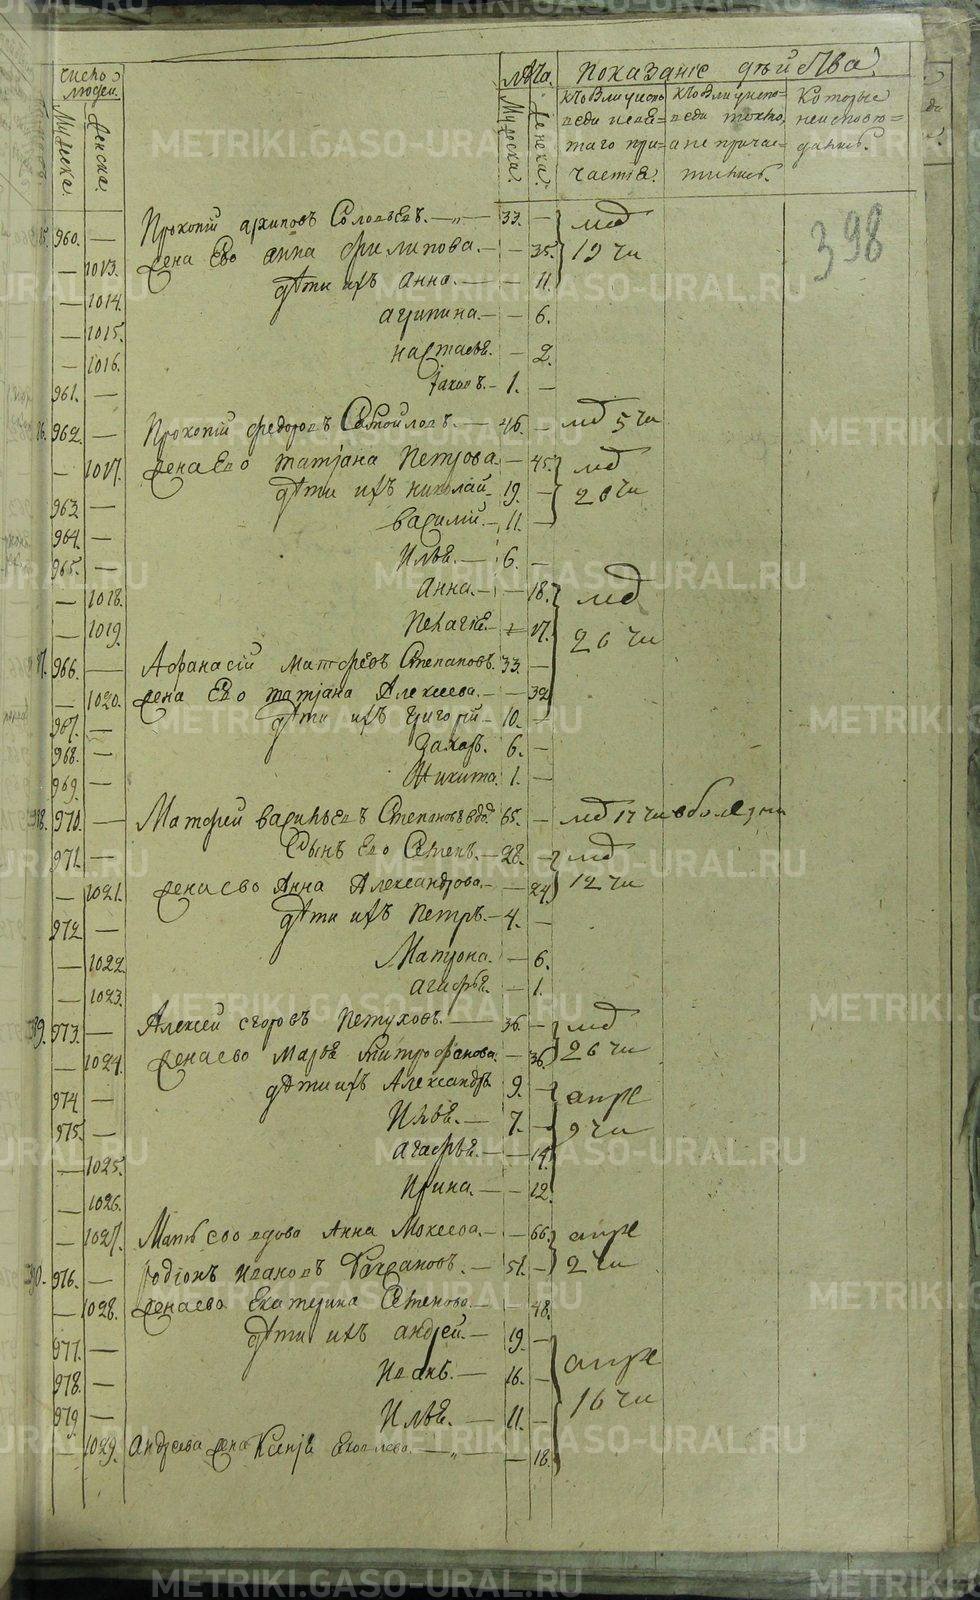 число людей.
Мужеска.
Женска.
лѣта.
Мужеска.
Женска.
Показаніе дѣйства.
кто были у исповеди и святаго причастія.
кто были у исповеди токмо, а не причастились.
Которые не исповедались.
398
960. — Прокопій архиповъ Соловьевъ. — 33. — мд
— 1013. жена Ево анна филипова. — — 35. 19 чи
— 1014. дѣти ихъ анна. — — 11.
— 1015. агрипина. — — 6.
— 1016. настасья. — 2.
961. — 1. —
962. — Прокопій федоровъ Самойловъ. — 46. — мд 5 чи
— 1017. жена Ево татіана Петрова. — 45. мд
963. — дѣти ихъ николай. 19. — 26 чи
964. — василий. — 11. —
965. — Илья. — 6. —
— 1018. Анна. — — 18. мд
— 1019. Пелагія. — 17. 26 чи
966. — Афанасій матфеевъ Степановъ. 33. —
— 1020. жена Ево татіана Алексеева. — — 32
967. — дѣти ихъ григорій — 10. —
968. — Захаръ. 6. —
969. — Никита. 1. —
970. — Матфей васильевъ Степановъ вдо. 65. — мд 17 чи в болезни
971. — Сынъ Ево Семенъ. — 28. — мд
— 1021. жена ево Анна Александрова. — — 24 12 чи
972 — дѣти ихъ петръ. — 4. —
— 1022. Матрона. — 6.
— 1023. агафья. — 1.
973. — Алексей егоровъ Петуховъ. — 36. — мд
— 1024. жена ево марья митрофанова. — 36. 26 чи
974 — дѣти ихъ Александръ. 9. — апре
975. — Илья. — 7. — 9 чи
— 1025. агафья. — — 14.
— 1026. Ирина. — — 12.
— 1027. Мать ево вдова Анна Мокеева. — — 66. апре
976. — родіонъ ивановъ 51. — 2 чи
— 1028. жена ево Екатерина Семенова. — 48.
977. — дѣти ихъ андрей. — 19 —
978. — Иванъ. — 16. — апре
979 — Илья. — 11. — 16 чи
— 1029. Андреева жена Ксенія Яковлева. — — 18.
METRIKI.GASO-URAL.RU